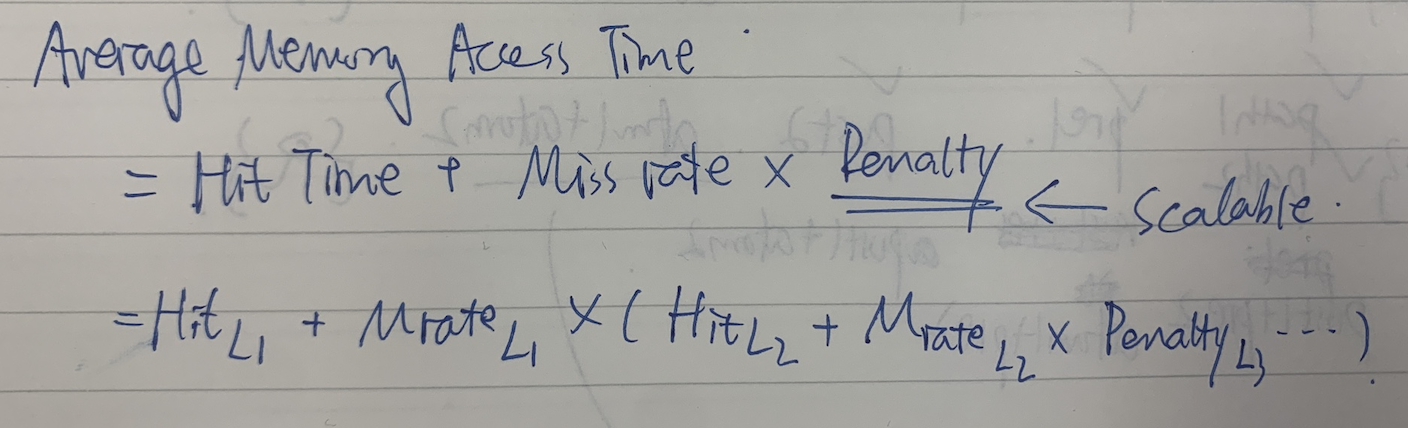 Average Memory Access Time
= Hit Time + Miss rate × Penalty ← Scalable.
= Hit_L1 + Mrate_L1 × ( Hit_L2 + Mrate_L2 × Penalty_L3 --- ).